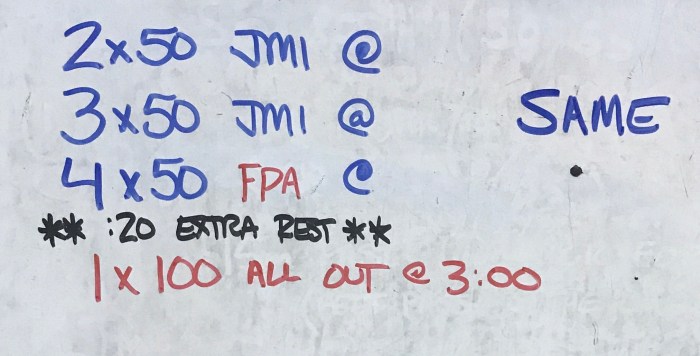 2x50 JMI @
3x50 JMI @ SAME
4x50 FPA @
** :20 EXTRA REST **
1x100 ALL OUT @ 3:00